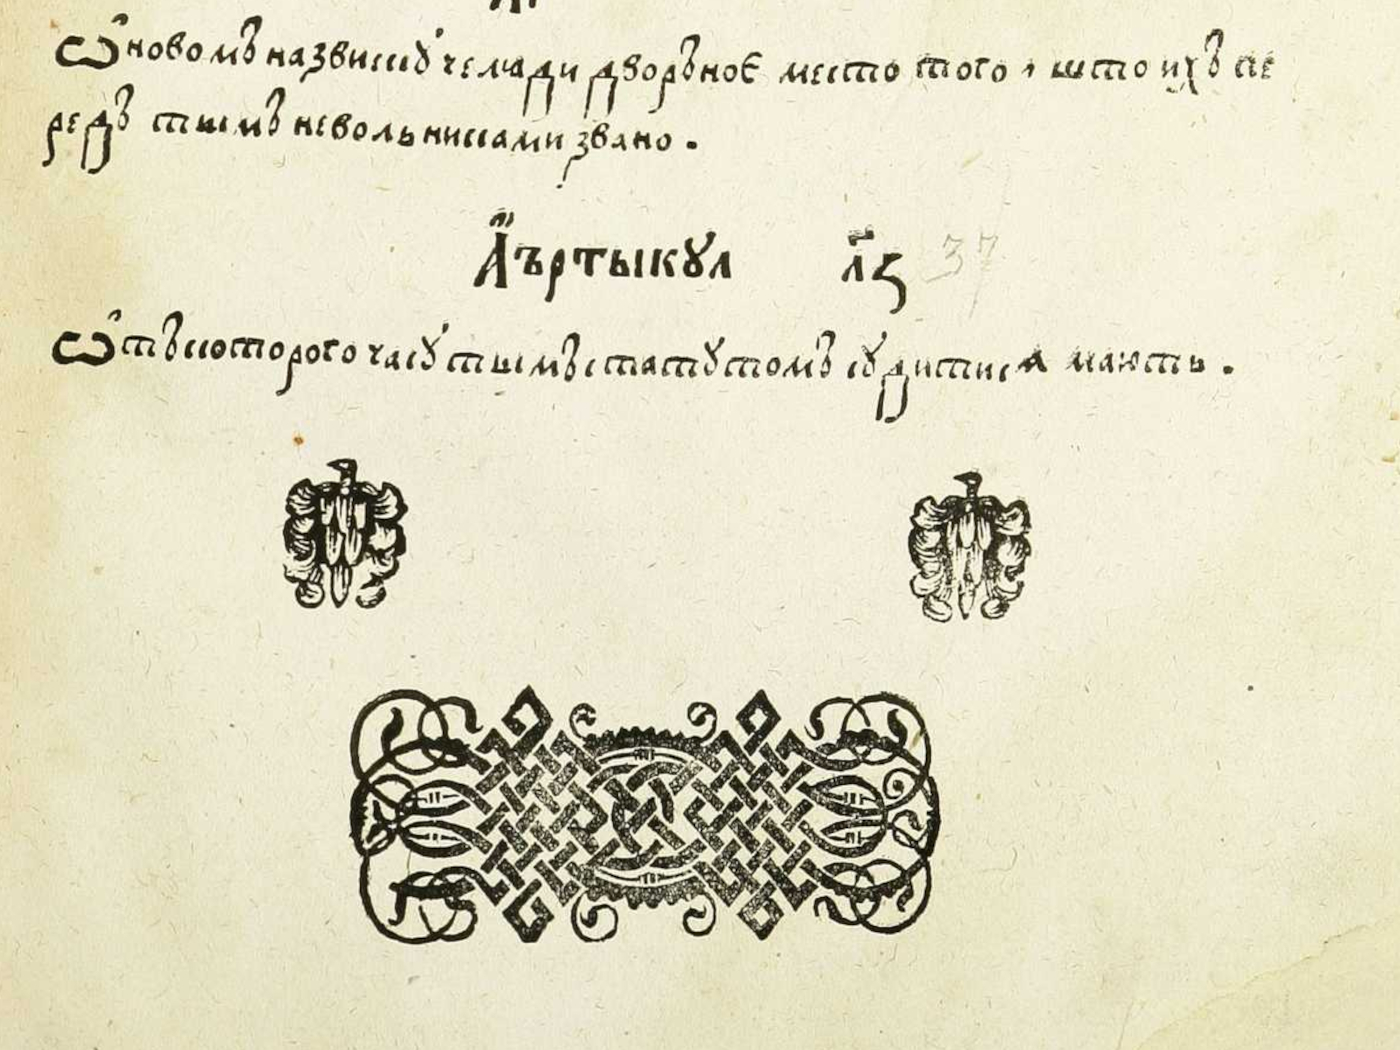 Ѡ новомъ назвиску челѧди дворъноє место того, што ихъ пе
редъ тымъ невольниками звано.
Арътыкул л҃з 37
Ѿ которого часу тымъ статутомъ судитисѧ мають.